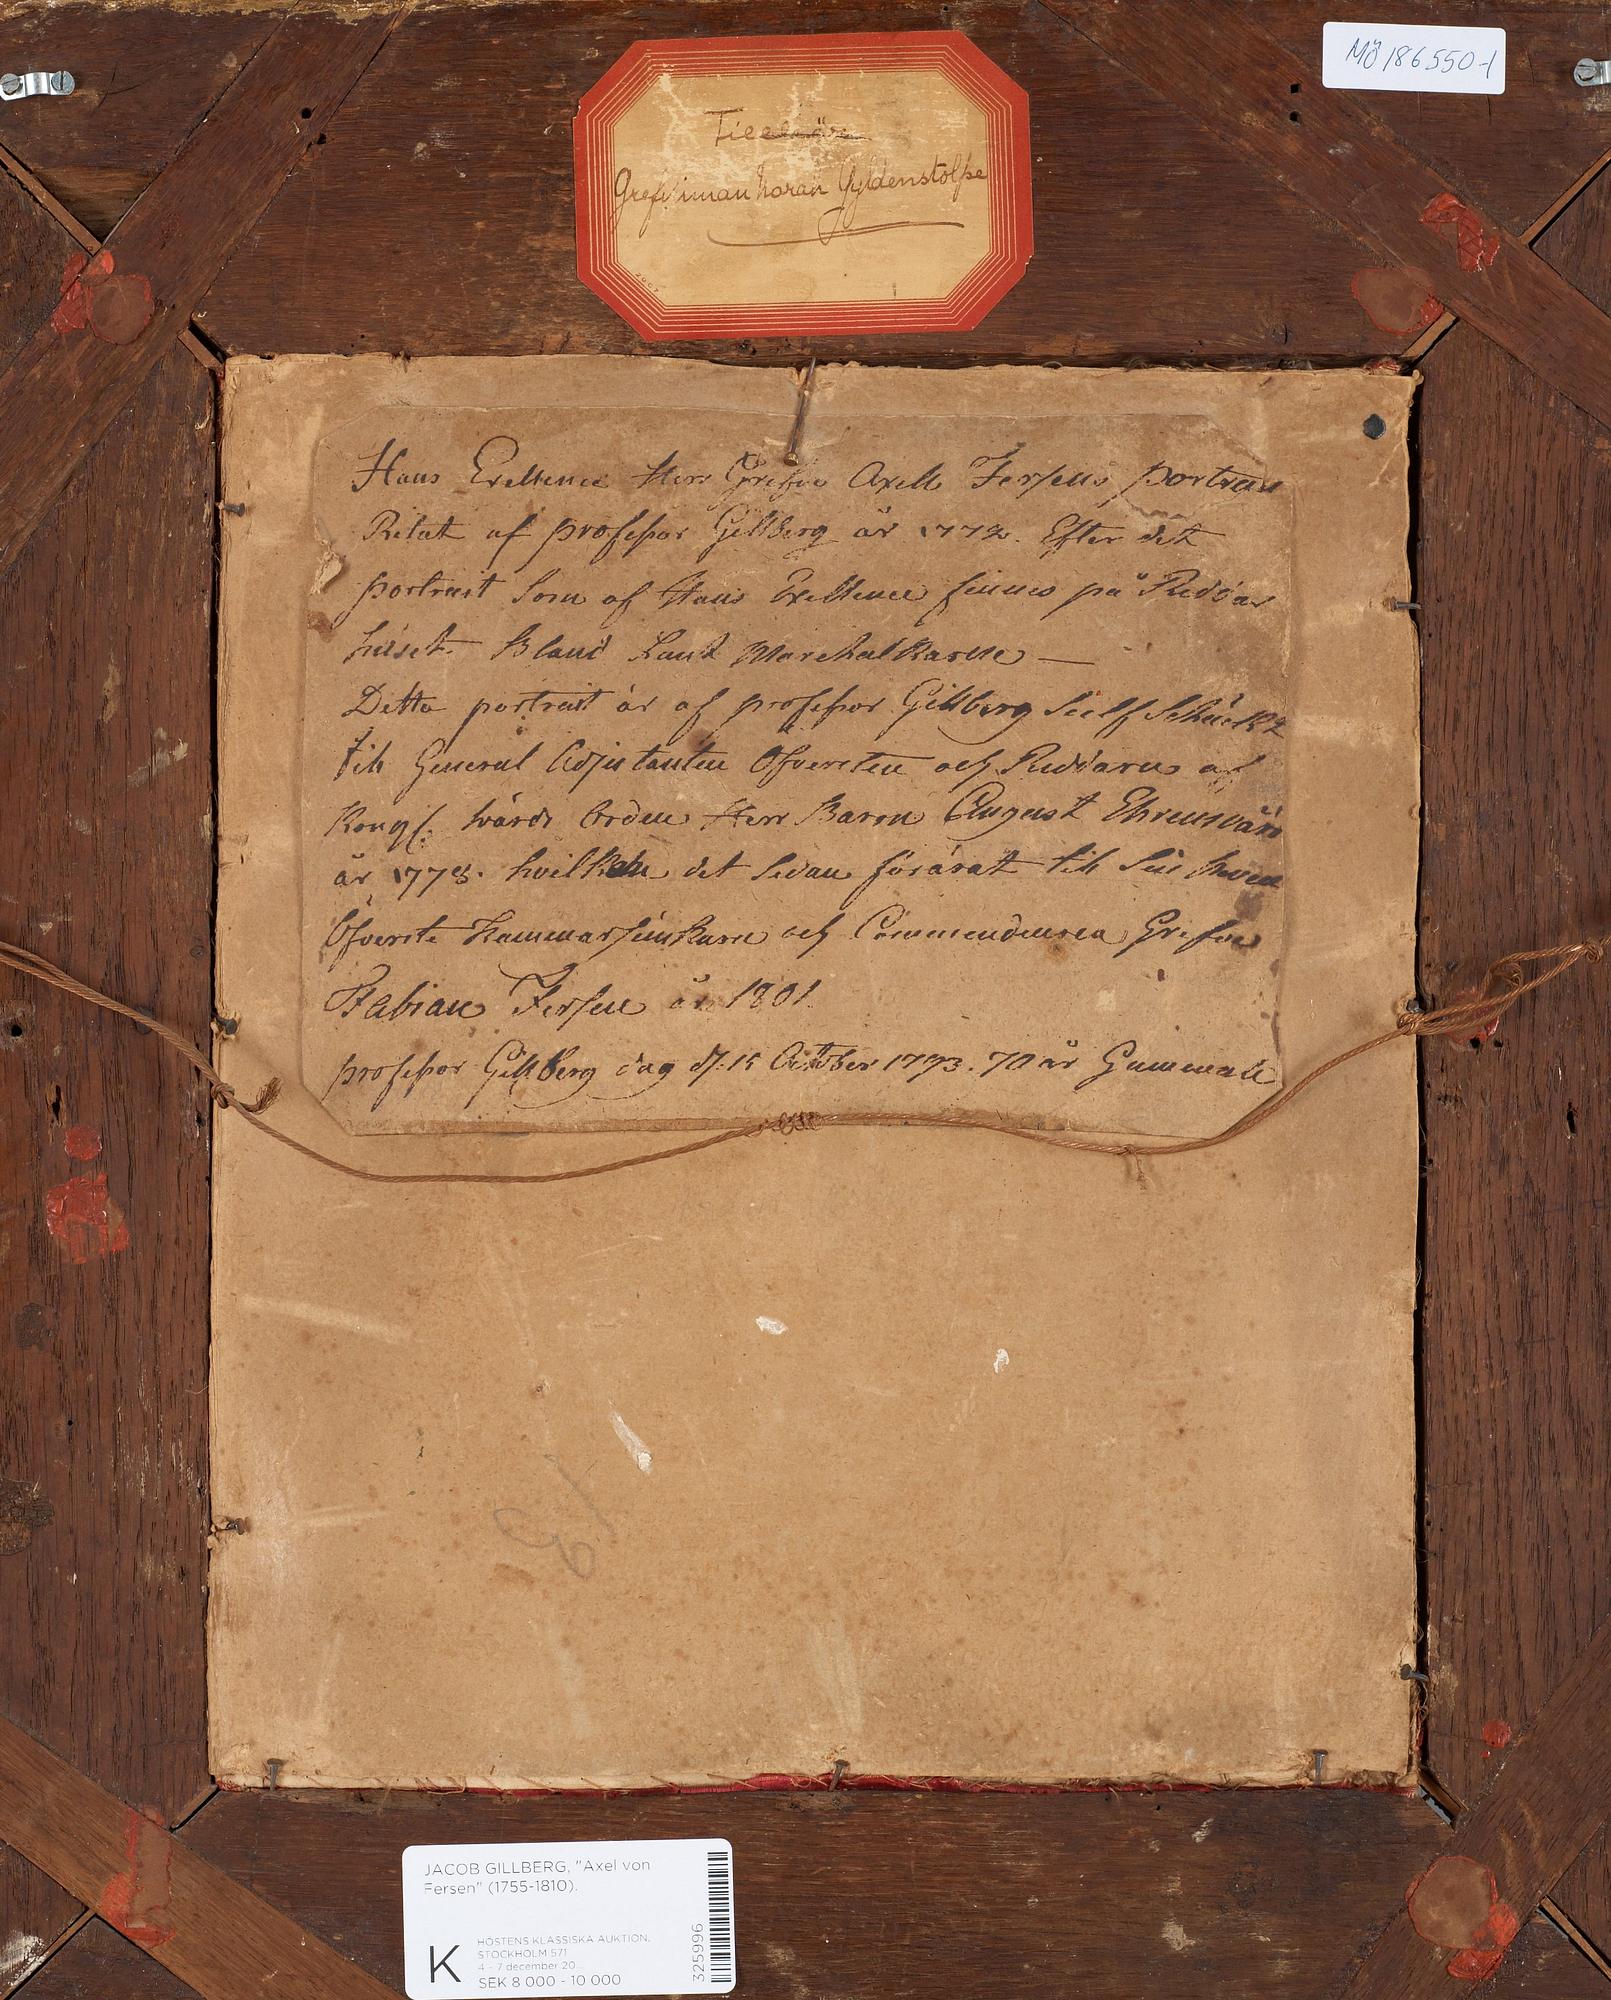 MÖ 186550-1
Grefvinnan Gyldenstolpe
Hans Exellence Herr Grefve Axell Fersens portrait
Ritat af professor Gillberg år 1772. Efter det
portrait Som af Hans Exellence finnes på Riddar
huset Bland Landt Marchalkarne —
Detta portrait är af professor Gillberg Sielf
till General Adjutanten Öfversten och Riddaren af
Kongl. Svärds Orden Herr Baron August Ehrensvärd
år 1778. hvilken det Sedan förärat till Sin
Öfverste Kammarjunkaren och Commendeuren Grefve
Fabian Fersen år 1801.
professor Gillberg dog d. 15 October 1793. 70 år Gammall
JACOB GILLBERG, "Axel von
Fersen" (1755-1810).
K
HÖSTENS KLASSISKA AUKTION,
STOCKHOLM 571
4 - 7 december 20...
SEK 8 000 - 10 000
325996